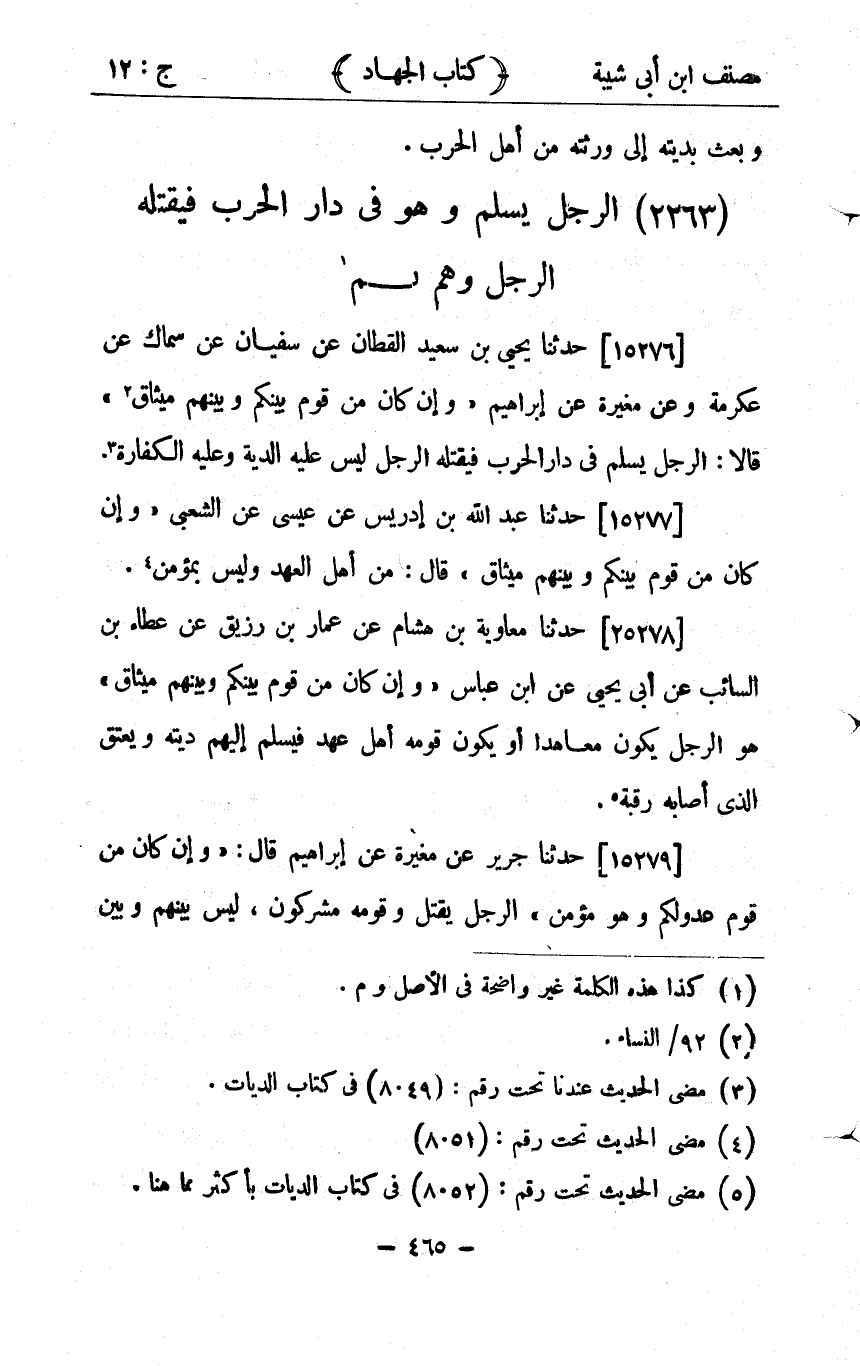 مصنف ابن أبى شيبة ﴿ كتاب الجهاد ﴾ ج : ١٢
و بعث بديته إلى ورثته من أهل الحرب .
(٢٢٦٣) الرجل يسلم و هو فى دار الحرب فيقتله
الرجل وهم ١
[١٥٢٧٦] حدثنا يحيى بن سعيد القطان عن سفيان عن سماك عن
عكرمة و عن مغيرة عن إبراهيم « و إن كان من قوم بينكم و بينهم ميثاق٢ »
قالا : الرجل يسلم فى دارالحرب فيقتله الرجل ليس عليه الدية وعليه الكفارة٣.
[١٥٢٧٧] حدثنا عبد الله بن إدريس عن عيسى عن الشعبى « و إن
كان من قوم بينكم و بينهم ميثاق ، قال : من أهل العهد وليس بمؤمن٤ .
[٢٥٢٧٨] حدثنا معاوية بن هشام عن عمار بن رزيق عن عطاء بن
السائب عن أبى يحيى عن ابن عباس « و إن كان من قوم بينكم وبينهم ميثاق »
هو الرجل يكون معاهدا أو يكون قومه أهل عهد فيسلم إليهم ديته و يعتق
الذى أصابه رقبة٥ .
[١٥٢٧٩] حدثنا جرير عن مغيرة عن إبراهيم قال : « و إن كان من
قوم عدولكم و هو مؤمن » الرجل يقتل و قومه مشركون ، ليس بينهم و بين
(١) كذا هذه الكلمة غير واضحة فى الأصل و م .
(٢) ٩٢/ النساء .
(٣) مضى الحديث عندنا تحت رقم : (٨٠٤٩) فى كتاب الديات .
(٤) مضى الحديث تحت رقم : (٨٠٥١)
(٥) مضى الحديث تحت رقم : (٨٠٥٢) فى كتاب الديات بأكثر مما هنا .
– ٤٦٥ –